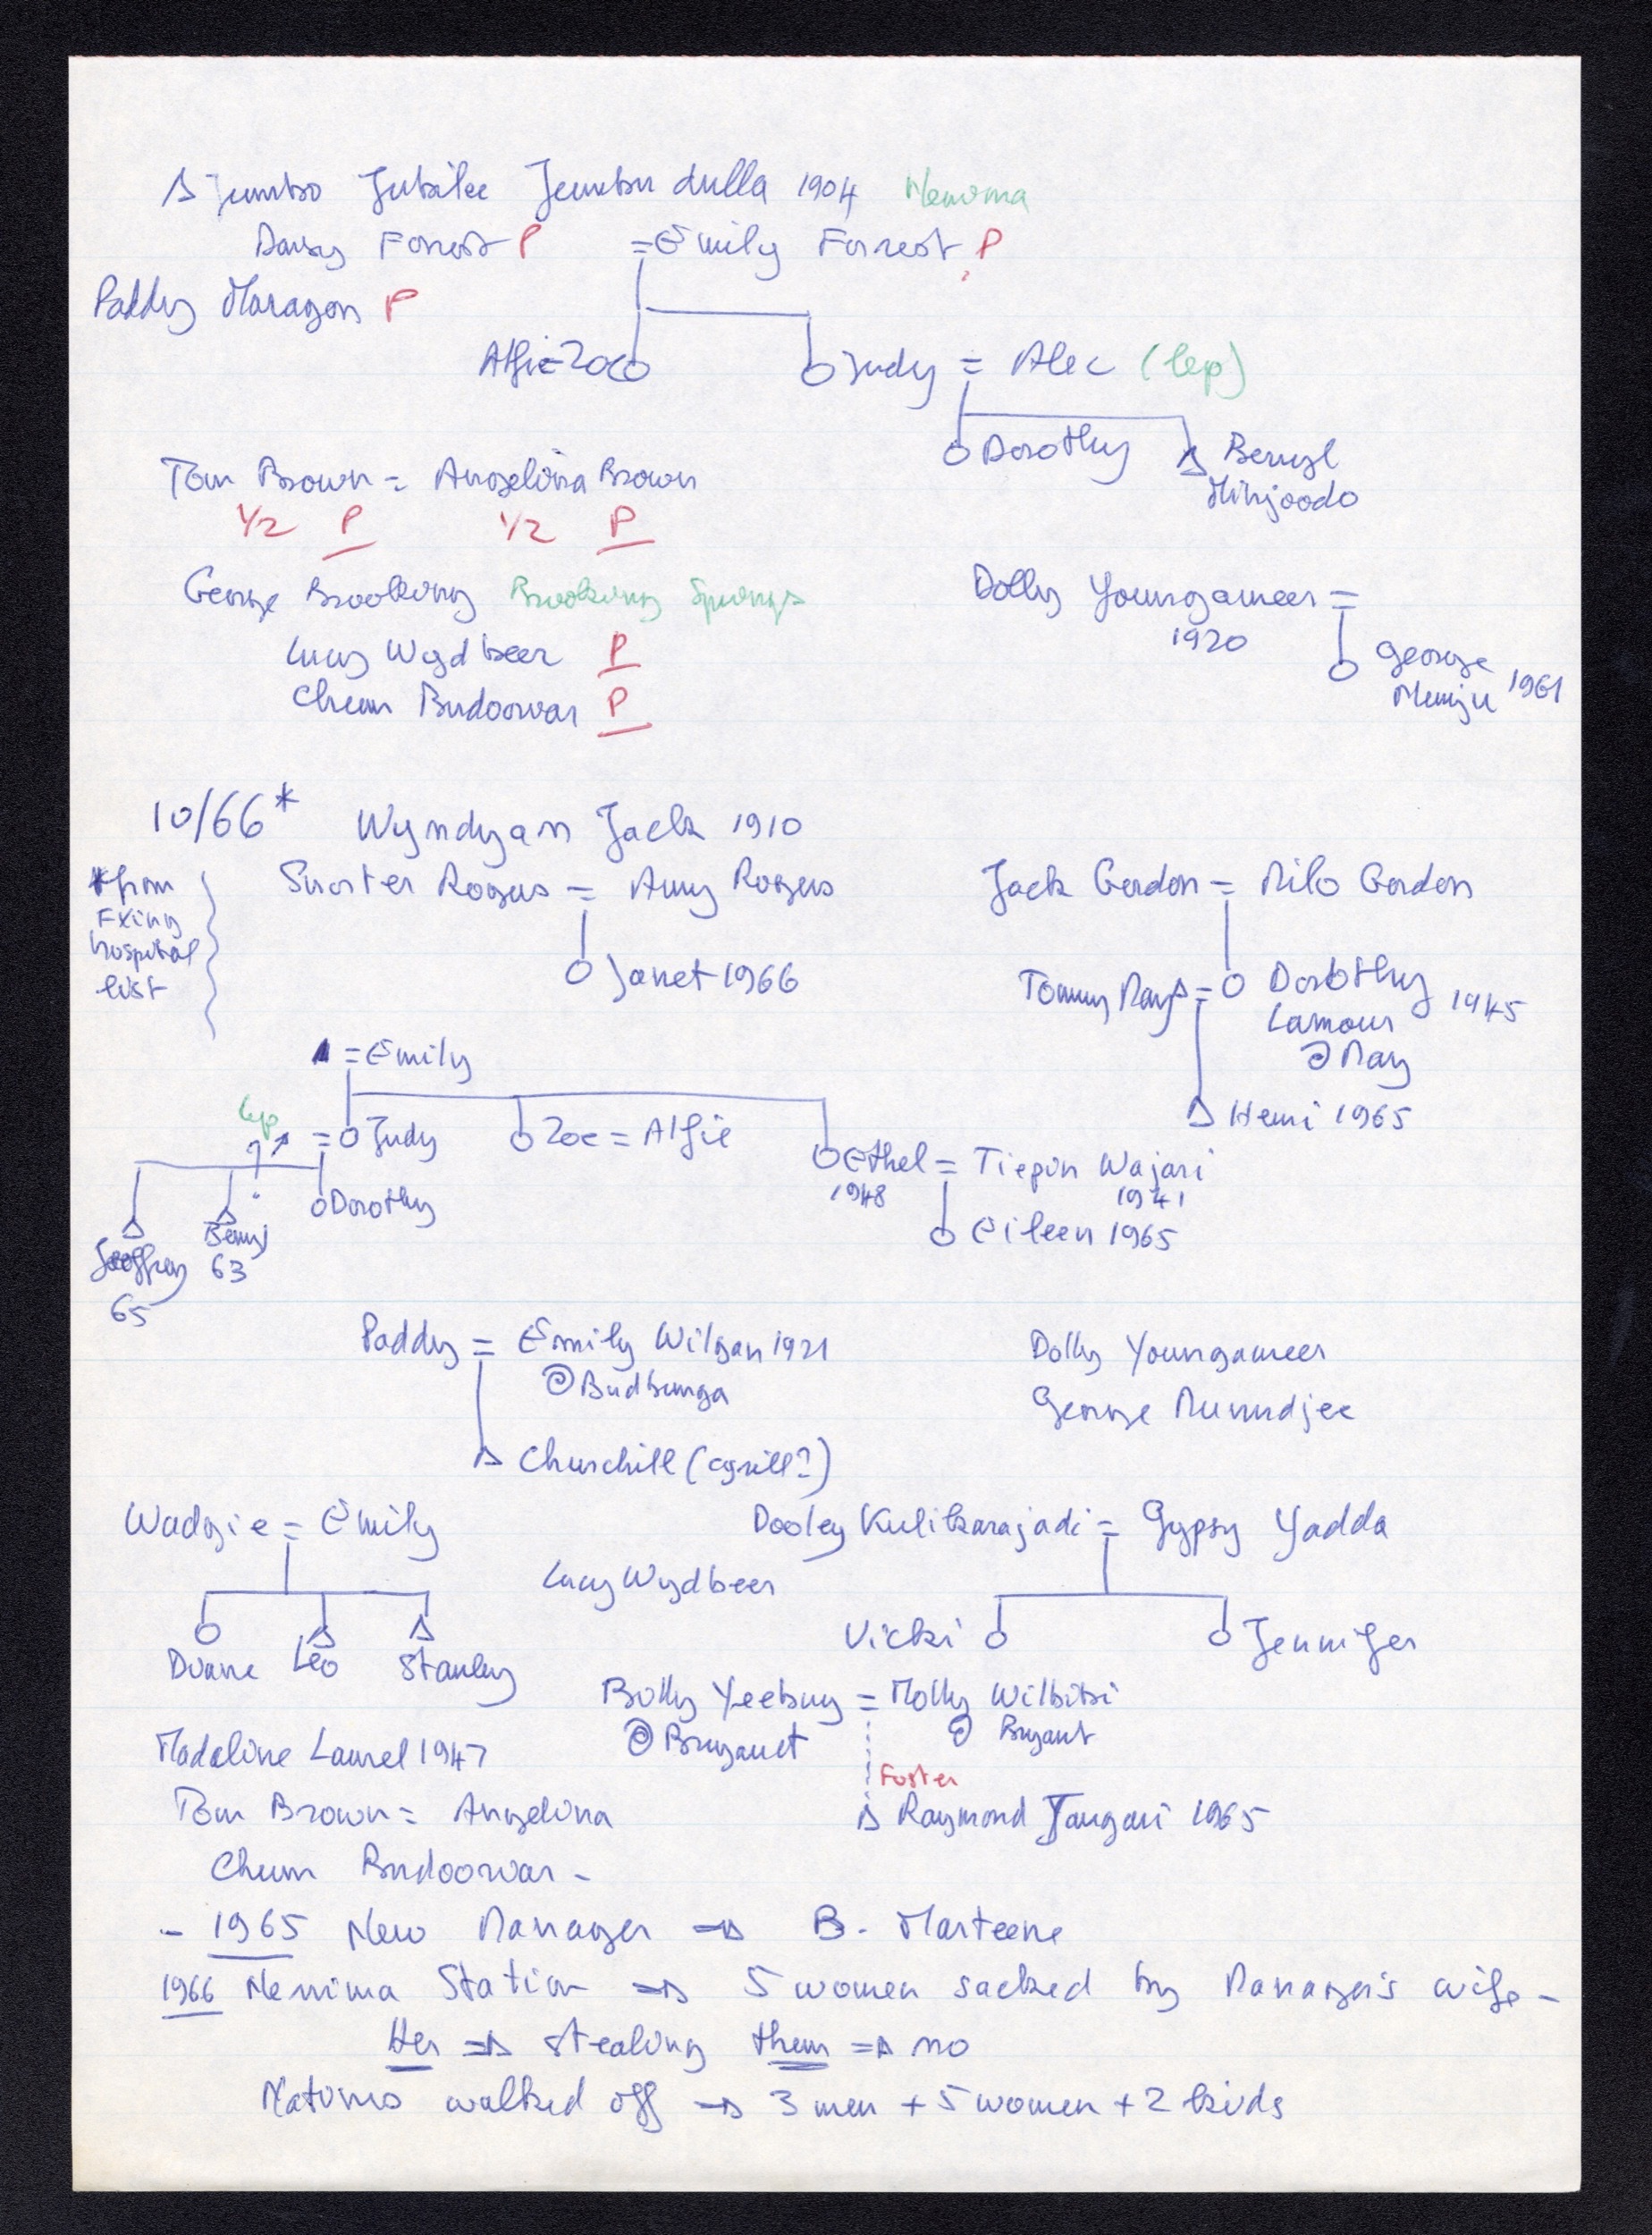 Jumbo Jubilee Jumbudulla 1904 Nerrima
Daisy Forrest P = Emily Forrest P ?
Paddy Maragon P
Alfie = Zoe
Judy = Alec (lep)
Dorothy
Beryl
Minjoodo
Tom Brown = Angelina Brown
1/2 P 1/2 P
George Brooking Brooking Springs
Lucy Wydbeer P
Chum Budoowar P
Dolly Youngameer =
1920
George
Memju 1961
10/66* Wyndyam Jack 1910
*from
FXing
hospital
list
Snorter Rogers = Amy Rogers
Janet 1966
Jack Gordon = Milo Gordon
Tommy May = Dorothy 1945
Lamour
@ May
Hemi 1965
= Emily
lep
? = Judy
Zoe = Alfie
Ethel = Tiepin Wajari
1948 1941
Dorothy
Benny
63
Jeoffrey
65
Eileen 1965
Paddy = Emily Wilgan 1921
@ Budbunga
Churchill (cyrill?)
Dolly Youngameer
George Mumudjee
Wadgie = Emily
Duane Leo Stanley
Lucy Wydbeer
Dooley Kulikarajadi = Gypsy Yadda
Vicki
Jennifer
Billy Yeebuy = Molly Wilbibi
@ Bryanet @ Bryant
Foster
Raymond Jangari 1965
Madeline Laurel 1947
Tom Brown = Angelina
Chum Budoowar -
- 1965 New Manager ⇒ B. Marteene
1966 Nerrima Station ⇒ 5 women sacked by Manager's wife -
Her ⇒ stealing them ⇒ no
Natives walked off → 3 men + 5 women + 2 kids